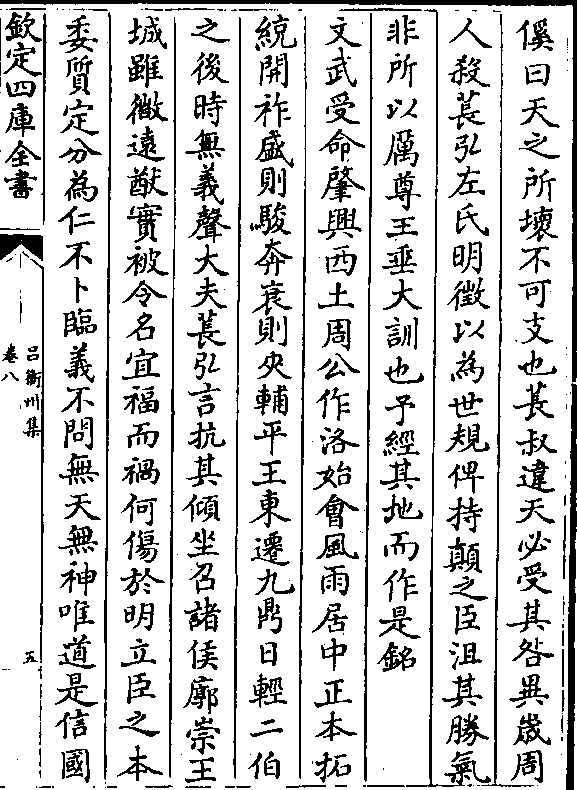 傒曰天之所壞不可支也萇叔違天必受其咎異歲周
人殺萇弘左氏明徵以為世規俾持顛之臣沮其勝氣
非所以厲尊王垂大訓也予經其地而作是銘
文武受命肇興西土周公作洛始會風雨居中正本拓
統開祚盛則駿奔衰則夾輔平王東遷九鼎日輕二伯
之後時無義聲大夫萇弘言抗其傾坐召諸侯廓崇王
城雖微遠猷實被令名宜福而禍何傷於明立臣之本
委質定分為仁不卜臨義不問無天無神唯道是信國
欽定四庫全書
呂衡州集
卷八
五